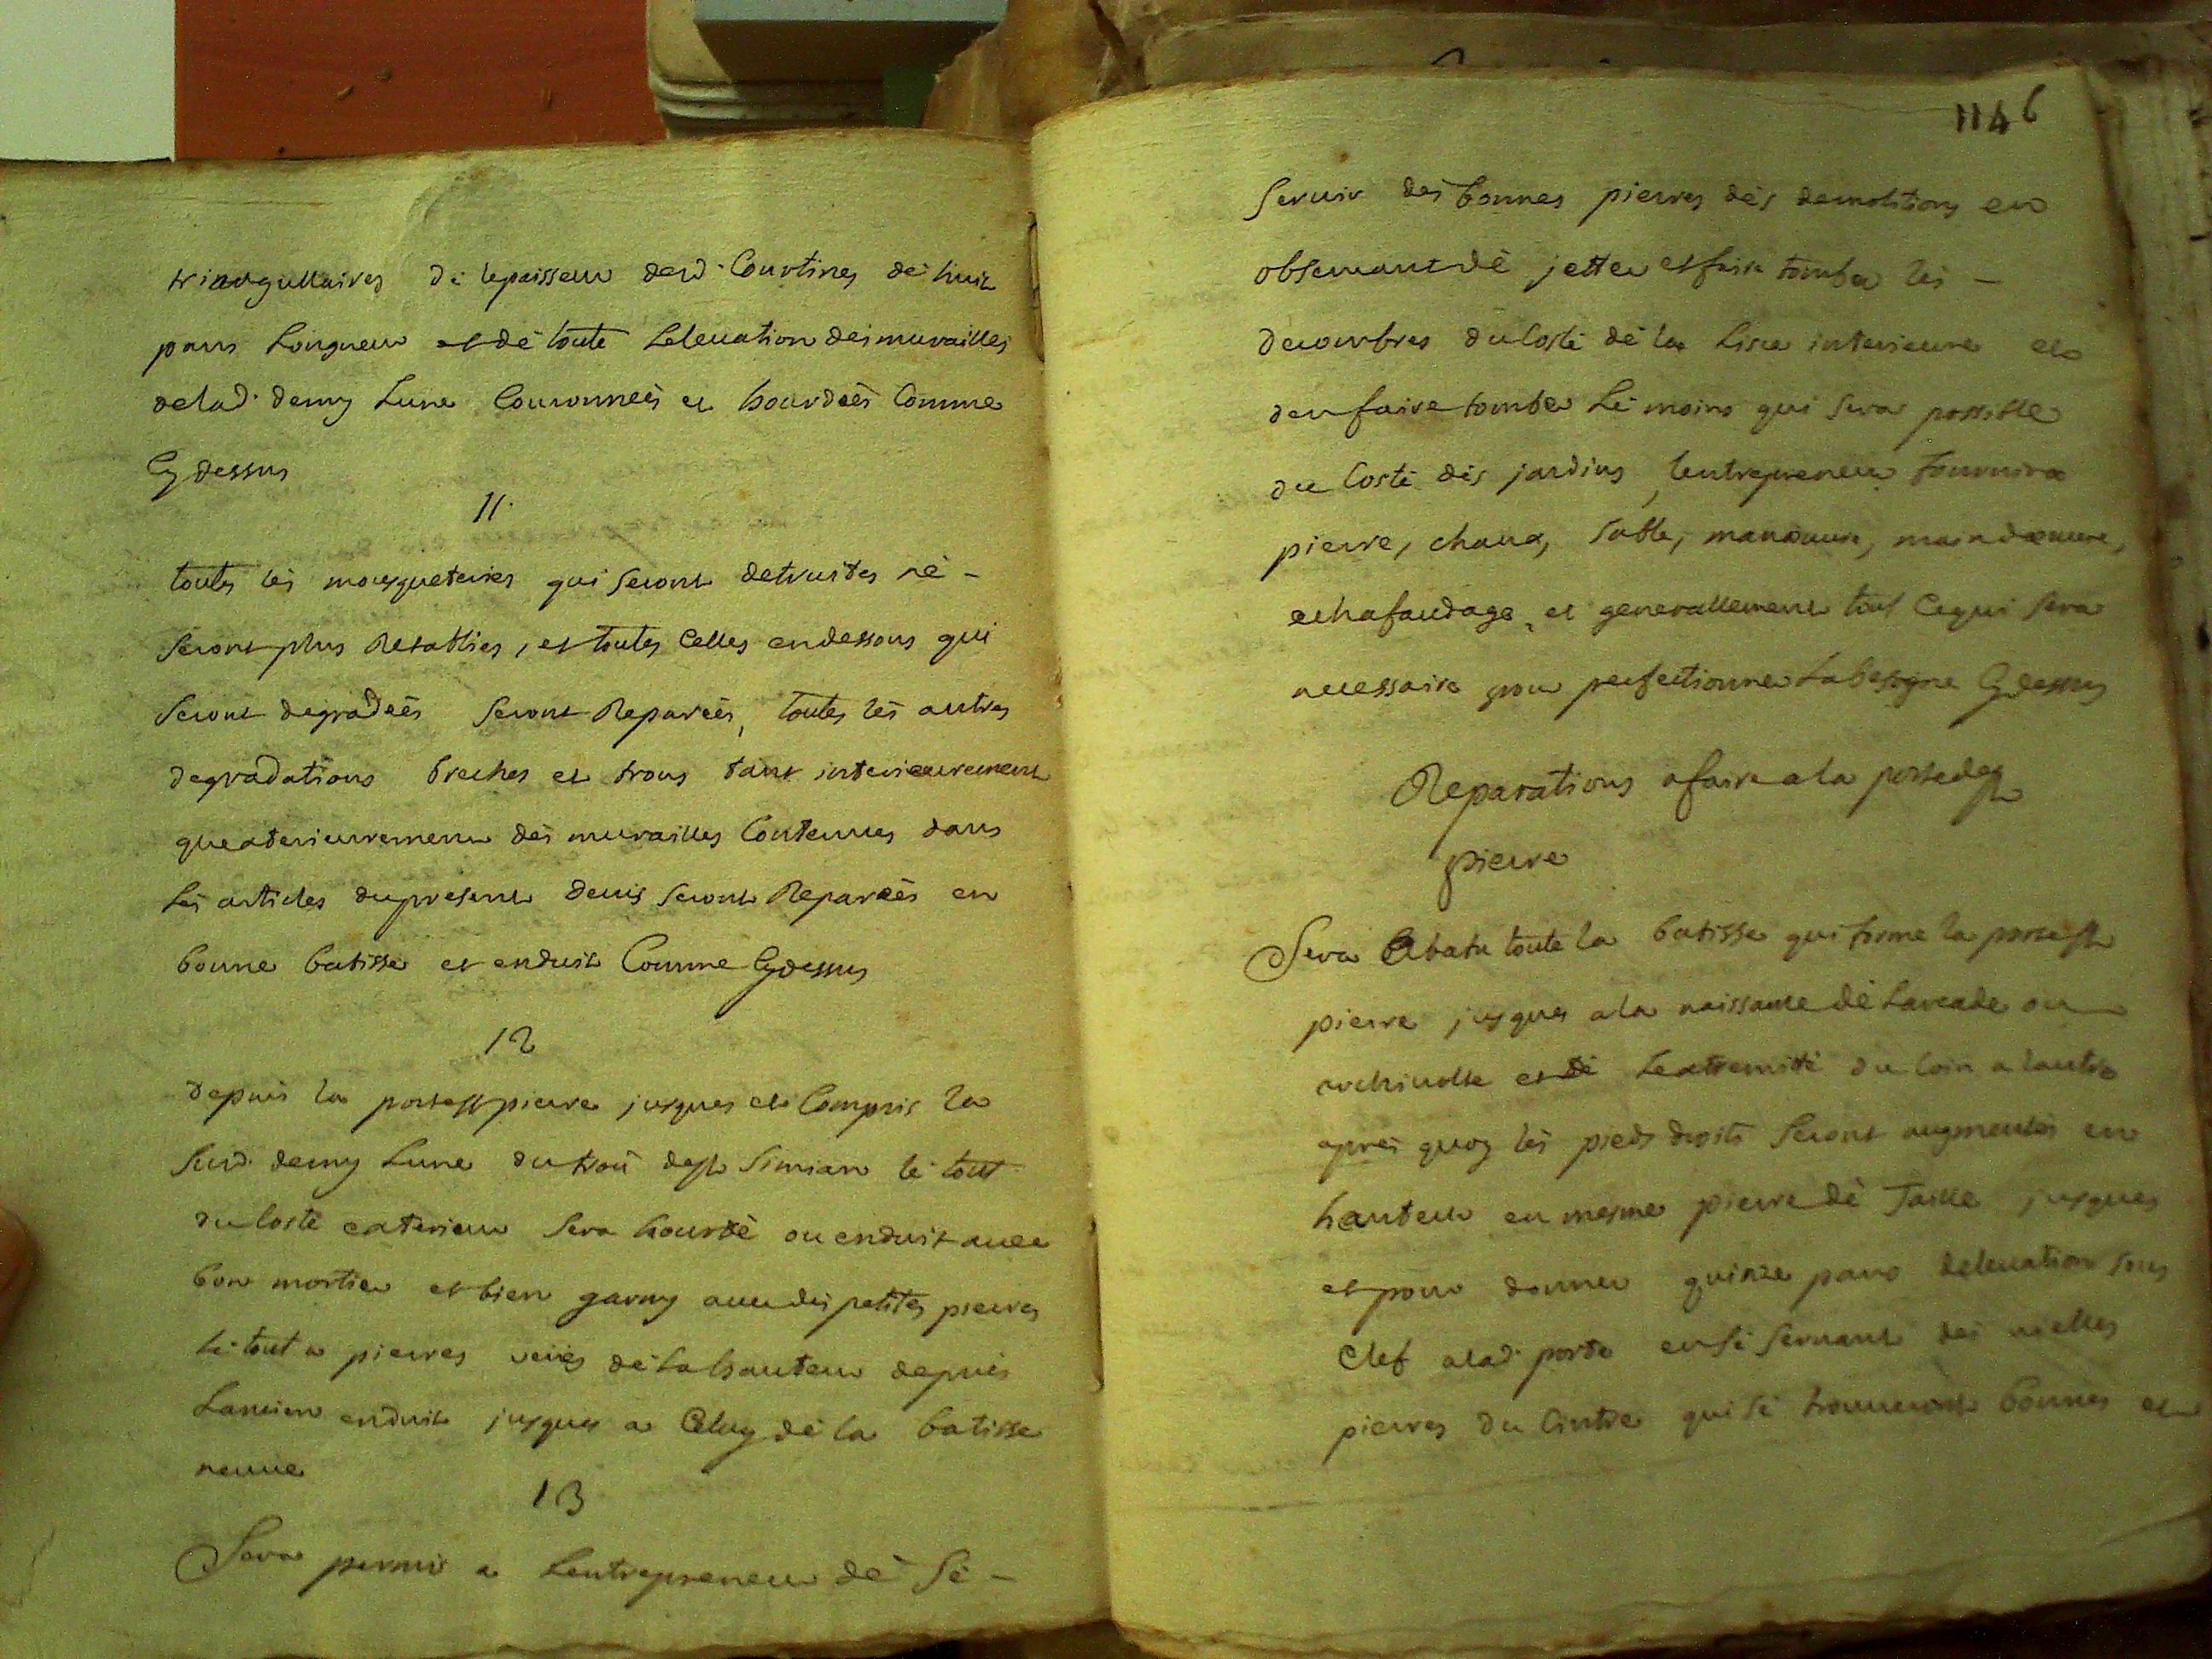 triangullaires de lepaisseur desd. Courtines de huit
pans Longueur et dé toute Leleuation des murailles
delad. demy Lune Couronneés et hourdeés Comme
Cy dessus
11.
toutes lés mousqueteires qui seront detruites né -
seront plus Retablies, et toutes Celles endessous qui
seront degradeés seront Repareés, toutes lés autres
degradations breches et trous tant interieurement
quexterieurement dés murailles Contenues dans
Lés articles dupresent deuis seront Repareés en
bonne batisse et enduit Comme Cydessus
12
depuis la porte st pierre jusques et Compris la
susd. demy Lune du trou de st Simian lé tout
du Costé exterieur sera hourdé ou enduit auec
bon mortier et bien garny auec des petites pierres
Lé tout a pierres veües dé La hauteur depuis
Lancien enduit jusques a Celuy dé la batisse
neuue
13
Sera permis a Lentrepreneur dé sé -
1146
seruir dés bonnes pierres dés demolitions en
obseruant dé jetter et faire tomber lés -
decombres du Costé dé la Lisse interieure et
den faire tomber Lé moins qui sera possible
du Costé dés jardins, Lentrepreneur fournira
pierre, chaux, sable, manœuure, maindœuure,
echafaudage, et generallement tout Cequi sera
necessaire pour perfectionner Labesogne Cydessus
Reparations afaire a la porte de st
pierre
Sera Abatu toute la batisse qui forme la porte st
pierre jusques ala naissance dé Larcade ou
archiuolte et dé Lextremité du Coin a lautre
aprés quoy lés pieds droits seront augmentés en
hauteur en mesme pierre dé Taille jusques
et pour donner quinze pans deleuation sous
Clef alad. porte en sé seruant dés vielles
pierres du Cintre qui sé trouueront bonnes et